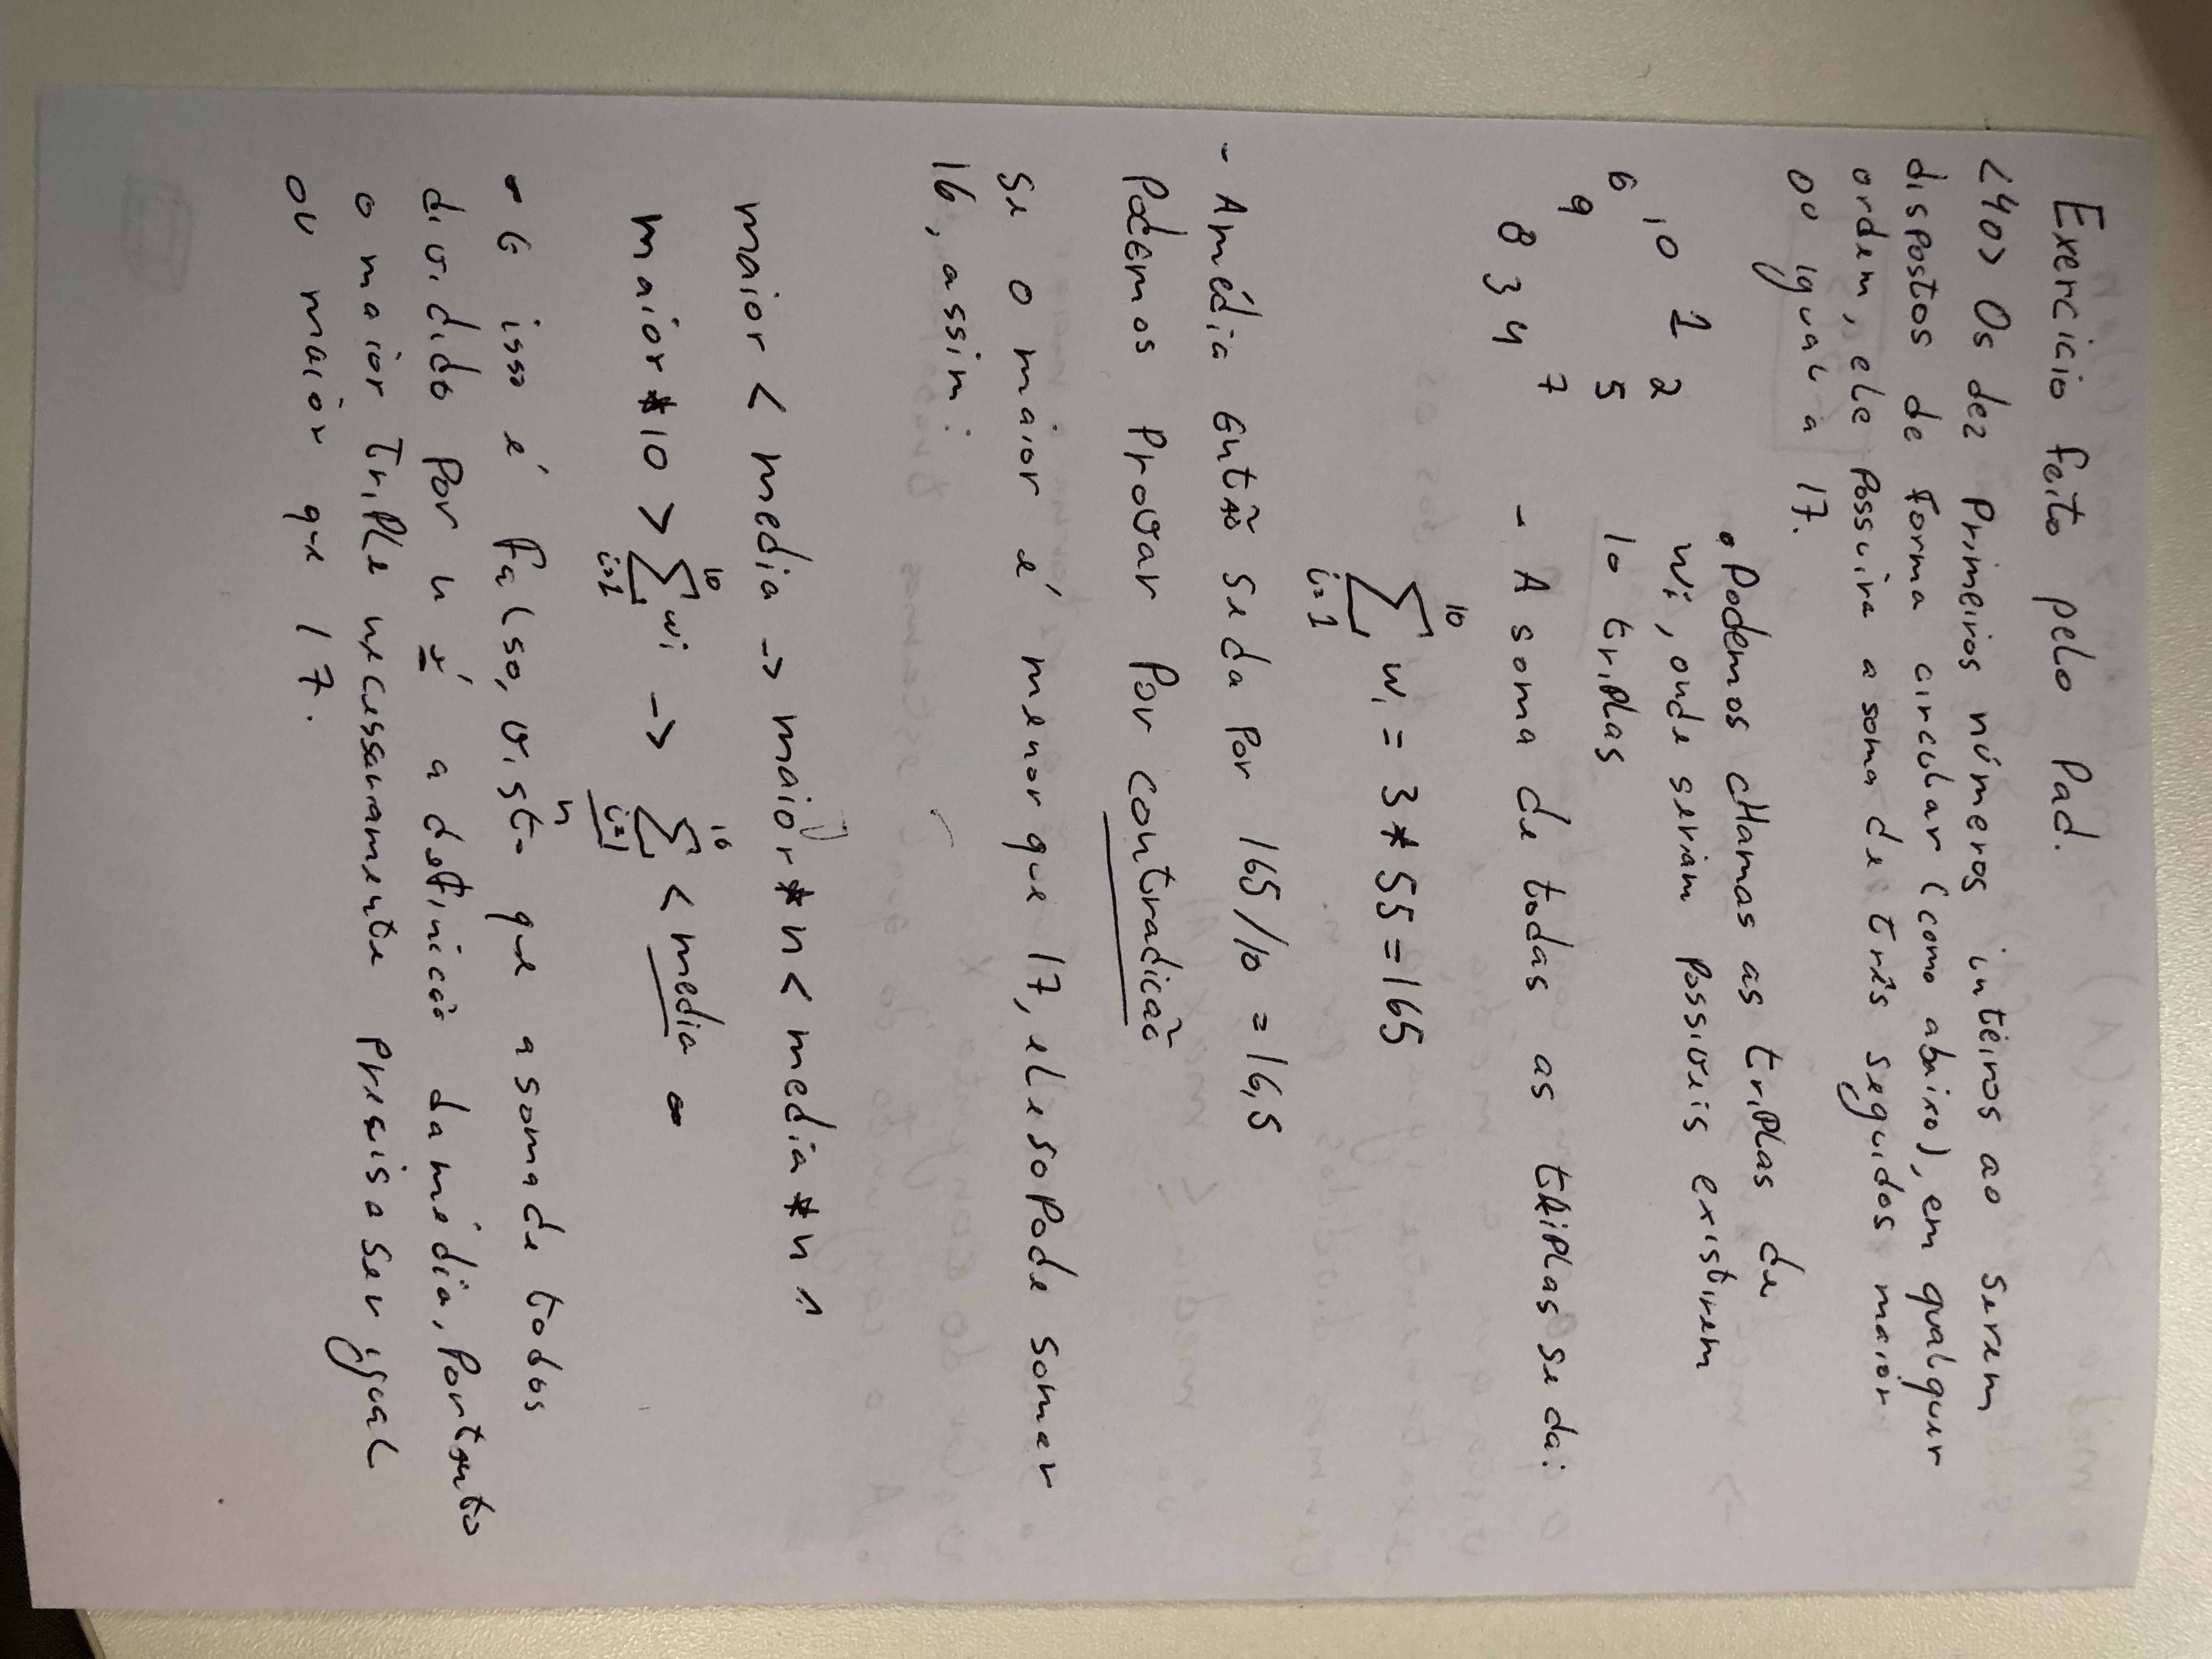 Exercicio feito pelo Pad.
<40> Os dez Primeiros números inteiros ao serem
dispostos de forma circular (como abaixo), em qualquer
ordem, ele Possuira a soma de três seguidos maior
ou igual a 17.
• Podemos cHamas as triplas de
wi, onde seriam Possiveis existirem
10 triplas
10 1 2
6 5
9 7
8 3 4
- A soma de todas as tRiplas se da:
10
∑ wi = 3 * 55 = 165
i=1
- A média então se da Por 165/10 = 16,5
Podemos Provar Por contradicão
se o maior é menor que 17, ele so Pode somar
16, assim:
maior < media -> maior * n < media * n ^
maior * 10 > ∑ wi -> ∑ < media
10 10
i=1 i=1
n
- E isso é Falso, visto que a soma de todos
dividido por n é a definicão da média, Portanto
o maior triple necessariamente precisa ser igual
ou maior que 17.